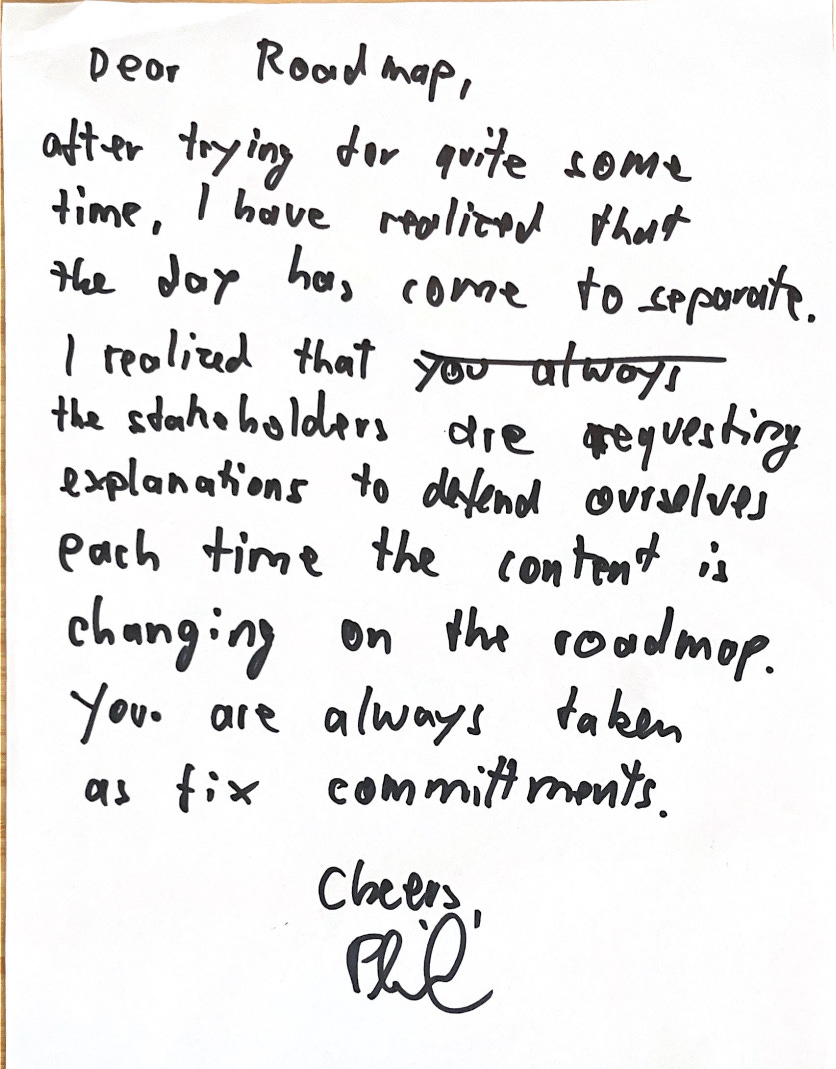 Dear Roadmap,
after trying for quite some
time, I have realized that
the day has come to separate.
I realized that ~~you always~~
the stakeholders are requesting
explanations to defend ourselves
each time the content is
changing on the roadmap.
You are always taken
as fix committments.
Cheers,
Phil